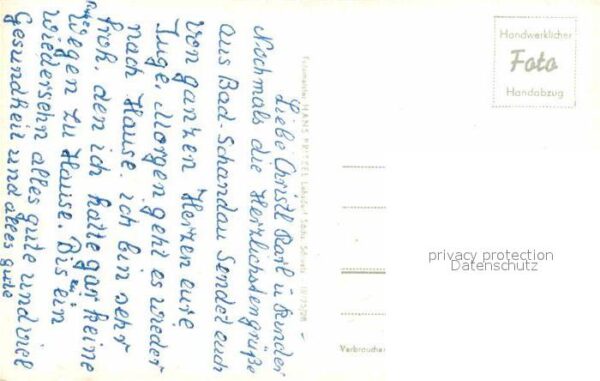 Liebe Christl Karl u Kinder
Nochmals die Herzlichstengrüße
aus Bad-Schandau Sendet euch
von ganzen Herzen eure
Inge. Morgen geht es wieder
nach Hause. ich bin sehr
froh, den ich hatte gar keine
Ruhe
wegen zu Hause. Bis ein
wiedersehn alles gute und viel
Gesundheit und alles gute
Fotomeister HANS
Sächs. Schweiz
Handwerklicher
Foto
Handabzug
privacy protection
Datenschutz
Verbraucher